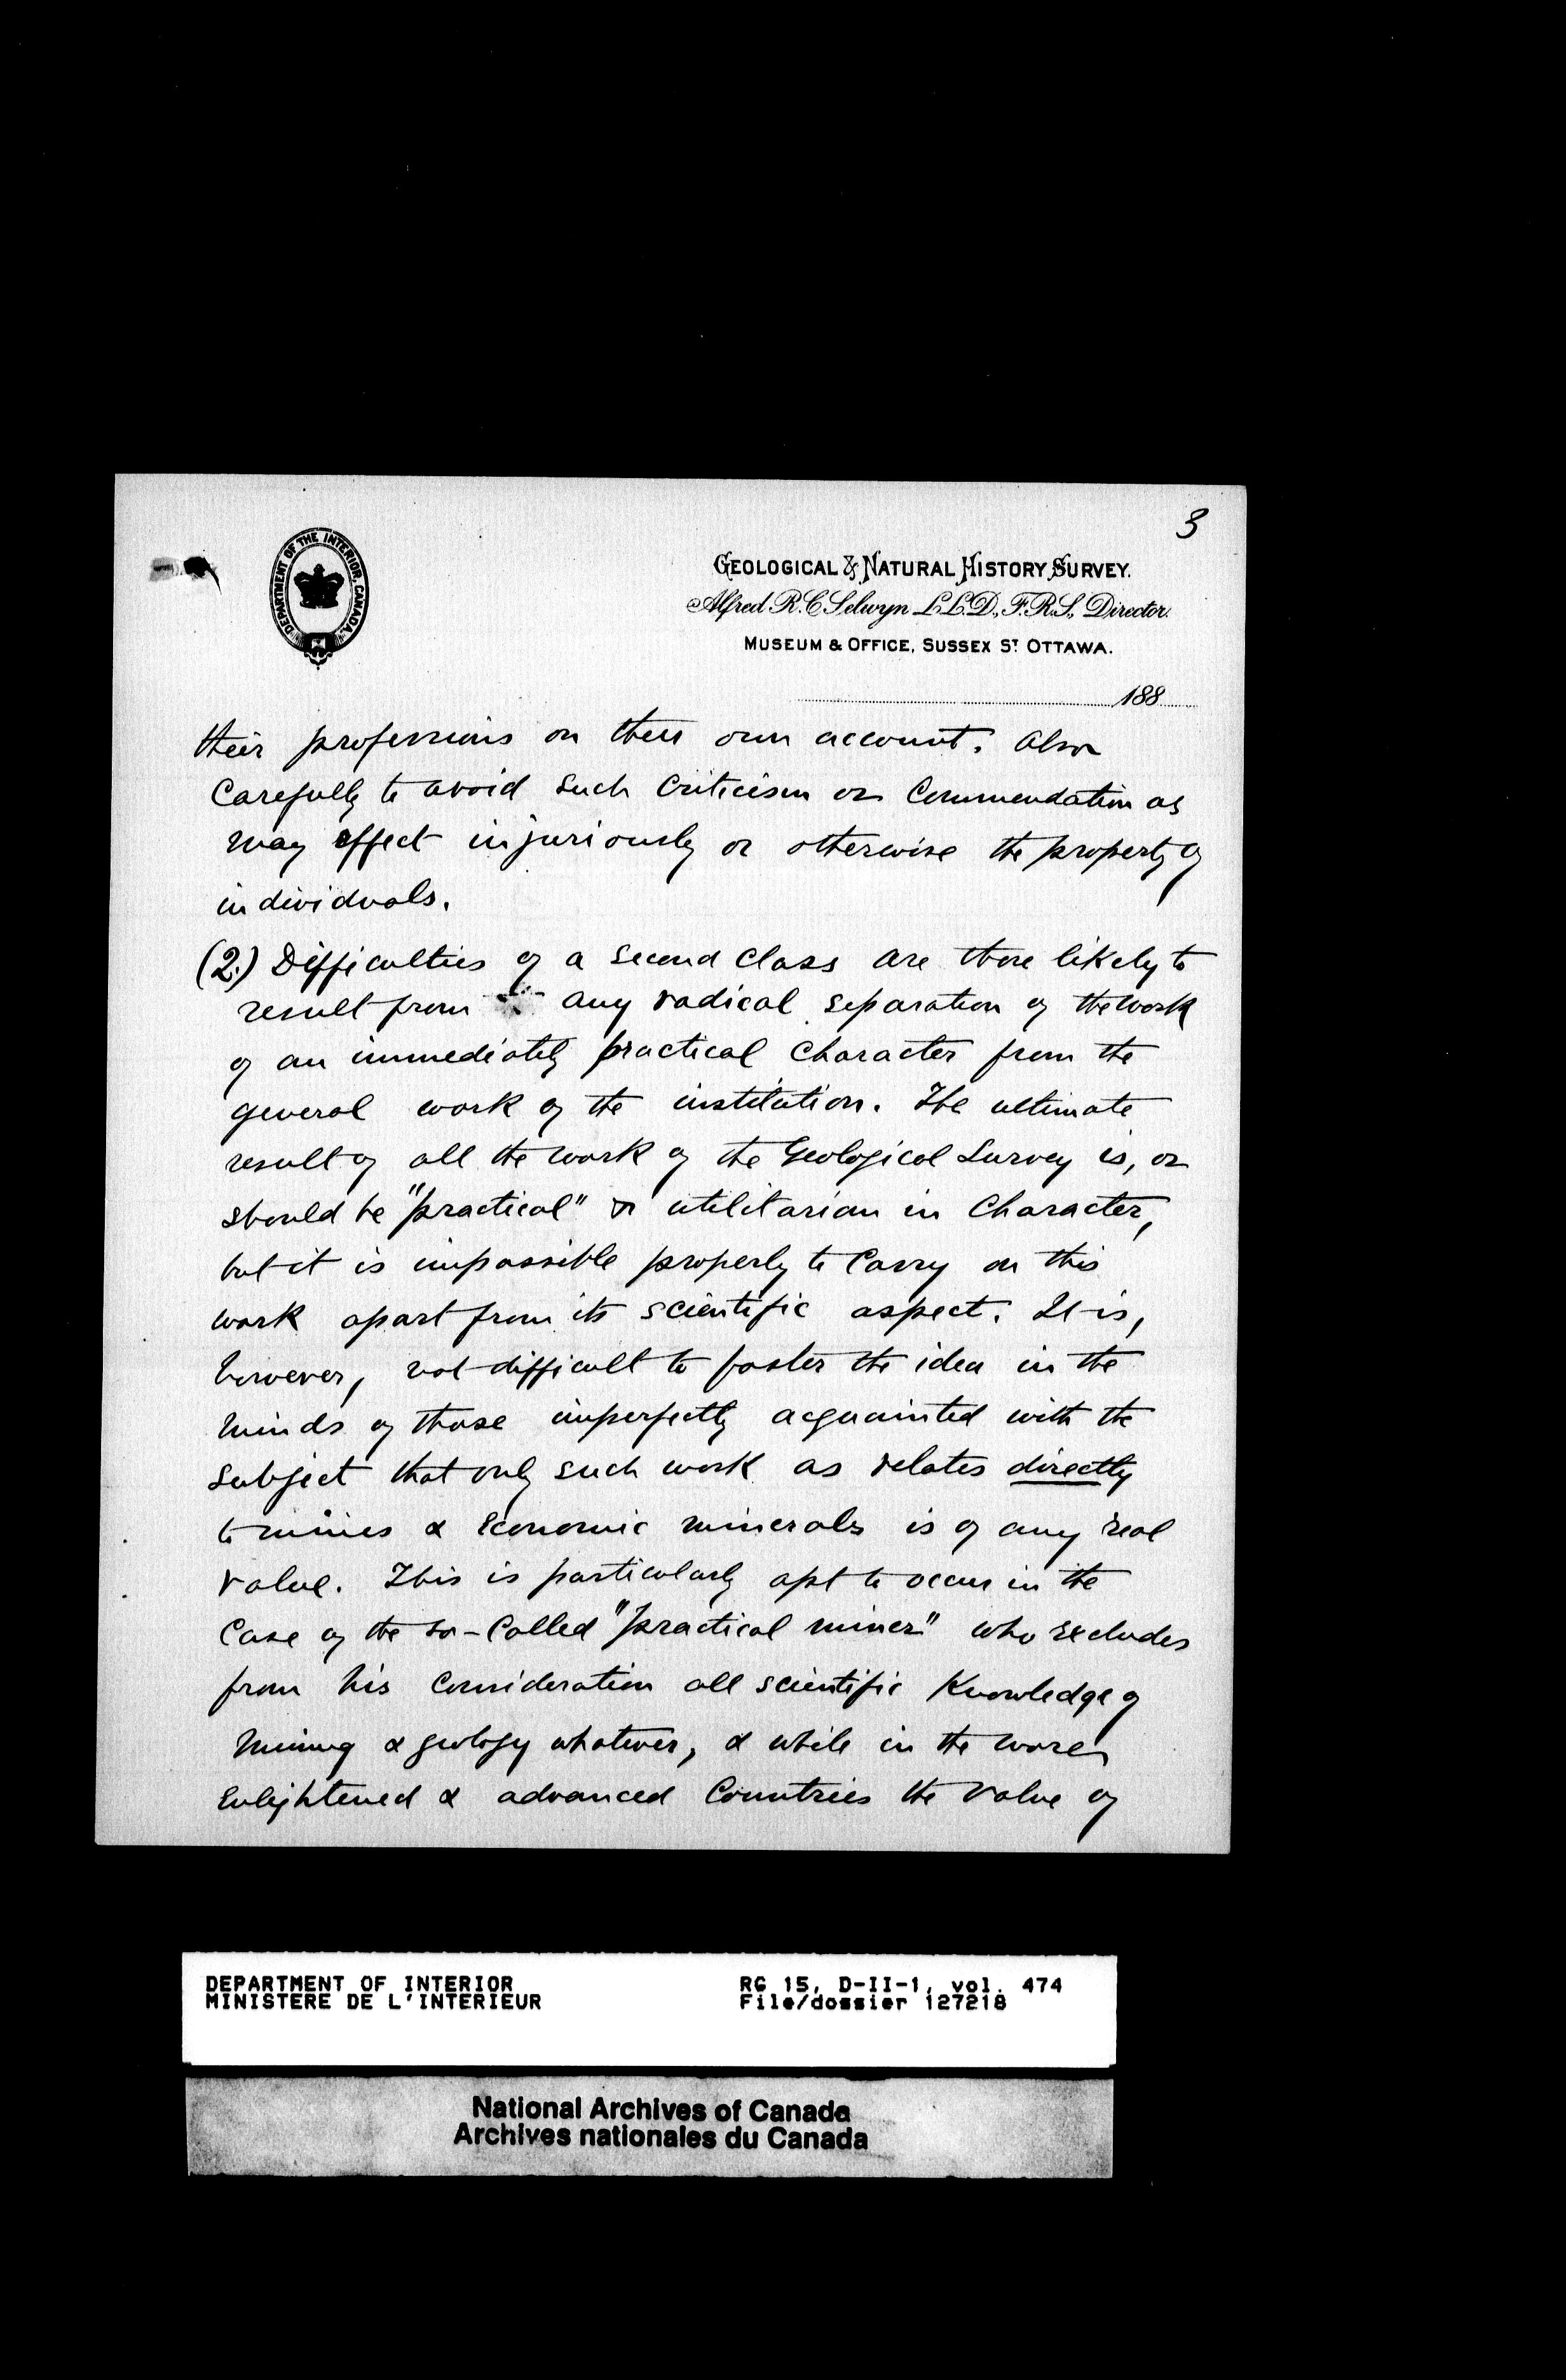 3
DEPARTMENT OF THE INTERIOR, CANADA.
GEOLOGICAL & NATURAL HISTORY SURVEY.
Alfred R. C. Selwyn L.L.D., F.R.S., Director.
MUSEUM & OFFICE, SUSSEX ST OTTAWA.
188
their professions on their own account. Also
Carefully to avoid such Criticism or Commendation as
may effect injuriously or otherwise the property of
individuals.
(2.) Difficulties of a second Class are those likely to
result from any radical separation of the work
of an immediately practical Character from the
general work of the institution. The ultimate
result of all the work of the Geological Survey is, or
should be "practical" or utilitarian in Character,
but it is impossible properly to Carry on this
work apart from its scientific aspect. It is,
however, not difficult to foster the idea in the
minds of those imperfectly acquainted with the
Subject that only such work as relates directly
to mines & Economic minerals is of any real
value. This is particularly apt to occur in the
Case of the so-Called "practical miner" who excludes
from his Consideration all scientific Knowledge of
Mining & geology whatever, & while in the more
Enlightened & advanced Countries the value of
DEPARTMENT OF INTERIOR
MINISTERE DE L'INTERIEUR
RG 15, D-II-1, vol. 474
File/dossier 127218
National Archives of Canada
Archives nationales du Canada